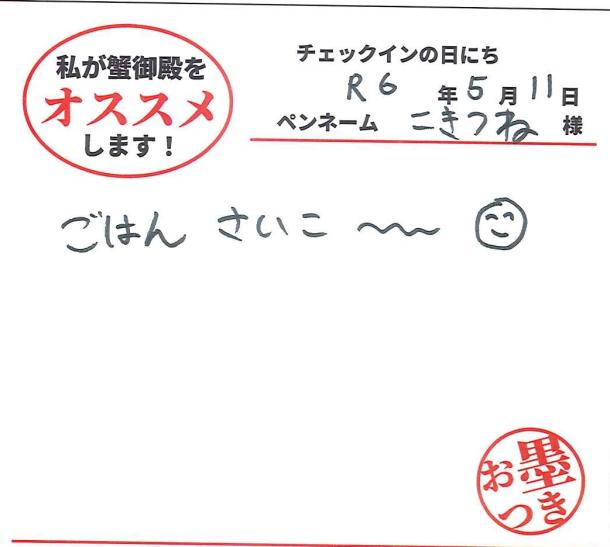 私が蟹御殿を
オススメ
します！
チェックインの日にち
R6年5月11日
ペンネーム こきつね 様
ごはん さいこ 〜〜
お墨つき